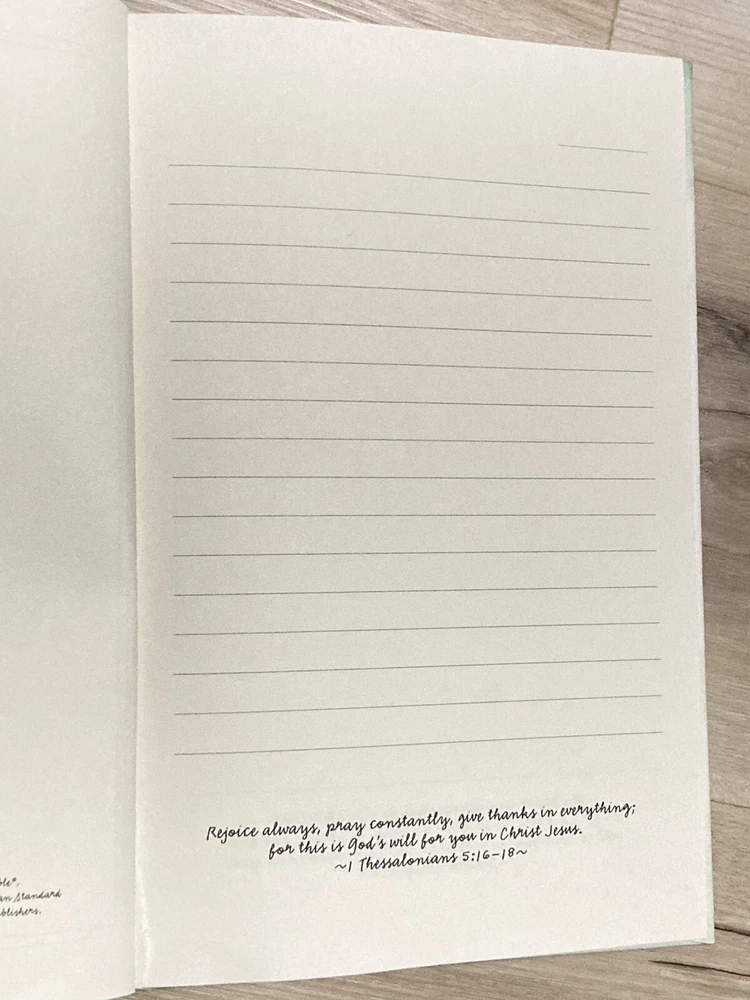 an Standard
Rejoice always, pray constantly, give thanks in everything;
for this is God's will for you in Christ Jesus.
~1 Thessalonians 5:16-18~